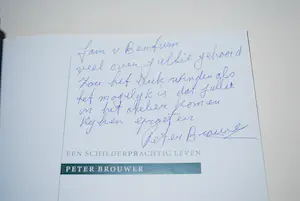 Fam v Bentum
veel over jullie gehoord
Zou het leuk vinden als
het mogelijk is dat jullie
in het atelier komen
kijken
Peter Brouwer
EEN SCHILDERPRACHTIG LEVEN
PETER BROUWER